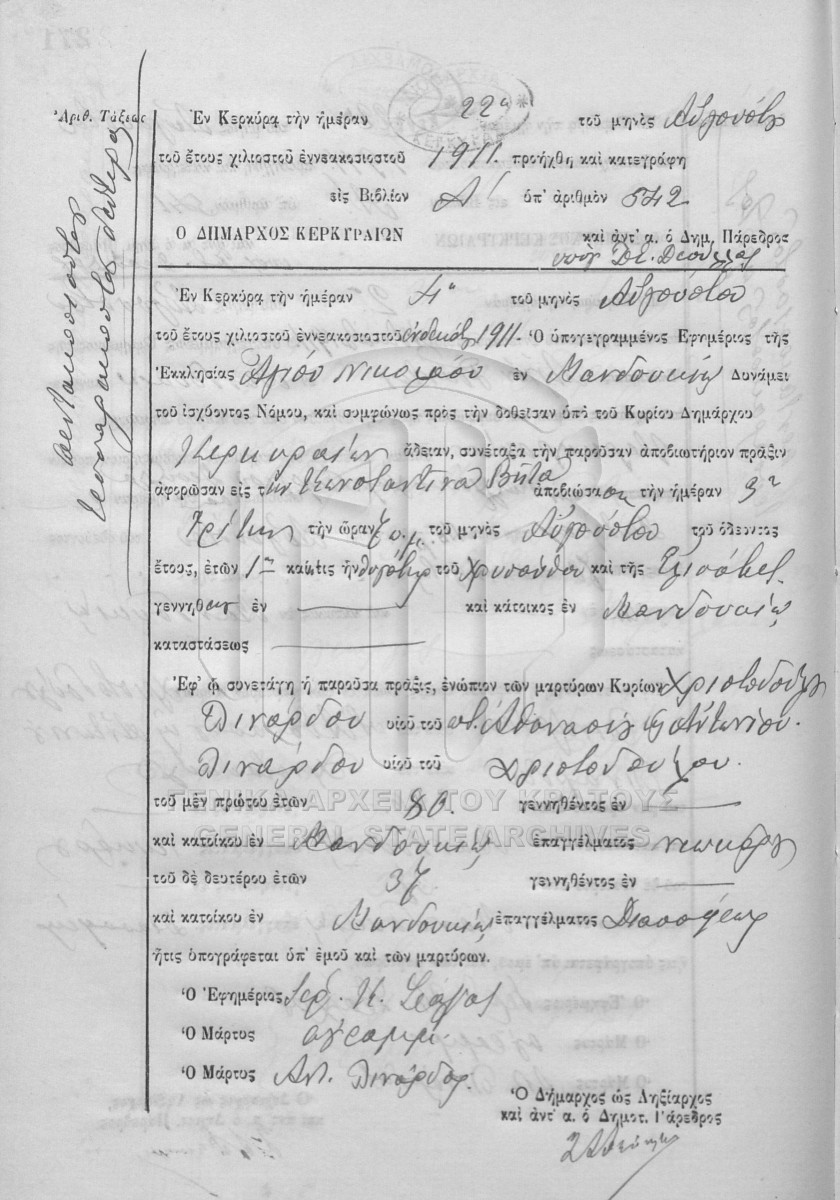 Ἀριθ. Τάξεως
πεντακοσιοστὸν
τεσσαρακοστὸν δεύτερον
Ἐν Κερκύρᾳ τὴν ἡμέραν 22α τοῦ μηνὸς Αὐγούστου
τοῦ ἔτους χιλιοστοῦ ἐννεακοσιοστοῦ 1911. προήχθη καὶ κατεγράφη
εἰς Βιβλίον Α΄ ὑπ' ἀριθμὸν 542
Ο ΔΗΜΑΡΧΟΣ ΚΕΡΚΥΡΑΙΩΝ καὶ ἀντ' α. ὁ Δημ. Πάρεδρος
Ἐν Κερκύρᾳ τὴν ἡμέραν 4η τοῦ μηνὸς Αὐγούστου
τοῦ ἔτους χιλιοστοῦ ἐννεακοσιοστοῦ ἑνδεκάτου 1911. Ὁ ὑπογεγραμμένος Ἐφημέριος τῆς
Ἐκκλησίας Ἁγίου Νικολάου ἐν Μανδουκίῳ Δυνάμει
τοῦ ἰσχύοντος Νόμου, καὶ συμφώνως πρὸς τὴν δοθεῖσαν ὑπὸ τοῦ Κυρίου Δημάρχου
Κερκυραίων ἄδειαν, συνέταξα τὴν παροῦσαν ἀποβιωτήριον πρᾶξιν
ἀφορῶσαν εἰς τὴν Κωνσταντίνα Βῆτα ἀποβιώσασα τὴν ἡμέραν 3η
Τρίτην τὴν ὥραν 7 π.μ. τοῦ μηνὸς Αὐγούστου τοῦ ὁδεύοντος
ἔτους, ἐτῶν 1 καὶ τις ἦν θυγάτηρ τοῦ Χρυσάνθου καὶ τῆς Ἐλισάβετ
γεννηθ ἐν καὶ κάτοικος ἐν Μανδουκίῳ
καταστάσεως
Ἐφ' ᾧ συνετάγη ἡ παροῦσα πρᾶξις, ἐνώπιον τῶν μαρτύρων Κυρίων Χριστοδούλου
Λινάρδου υἱοῦ τοῦ ποτ. Ἀθανασίου Ἀντωνίου.
Λινάρδου υἱοῦ τοῦ Χριστοδούλου.
τοῦ μὲν πρώτου ἐτῶν 80. γεννηθέντος ἐν
καὶ κατοίκου ἐν Μανδουκίῳ ἐπαγγέλματος
τοῦ δὲ δευτέρου ἐτῶν 37 γεννηθέντος ἐν
καὶ κατοίκου ἐν Μανδουκίῳ ἐπαγγέλματος
ἥτις ὑπογράφεται ὑπ' ἐμοῦ καὶ τῶν μαρτύρων.
Ὁ Ἐφημέριος Ἱερ. Κ.
Ὁ Μάρτυς ἀγράμμ.
Ὁ Μάρτυς Ἀντ. Λινάρδος
Ὁ Δήμαρχος ὡς Ληξίαρχος
καὶ ἀντ' α. ὁ Δημοτ. Πάρεδρος
ΓΕΝΙΚΑ ΑΡΧΕΙΑ ΤΟΥ ΚΡΑΤΟΥΣ
GENERAL STATE ARCHIVES